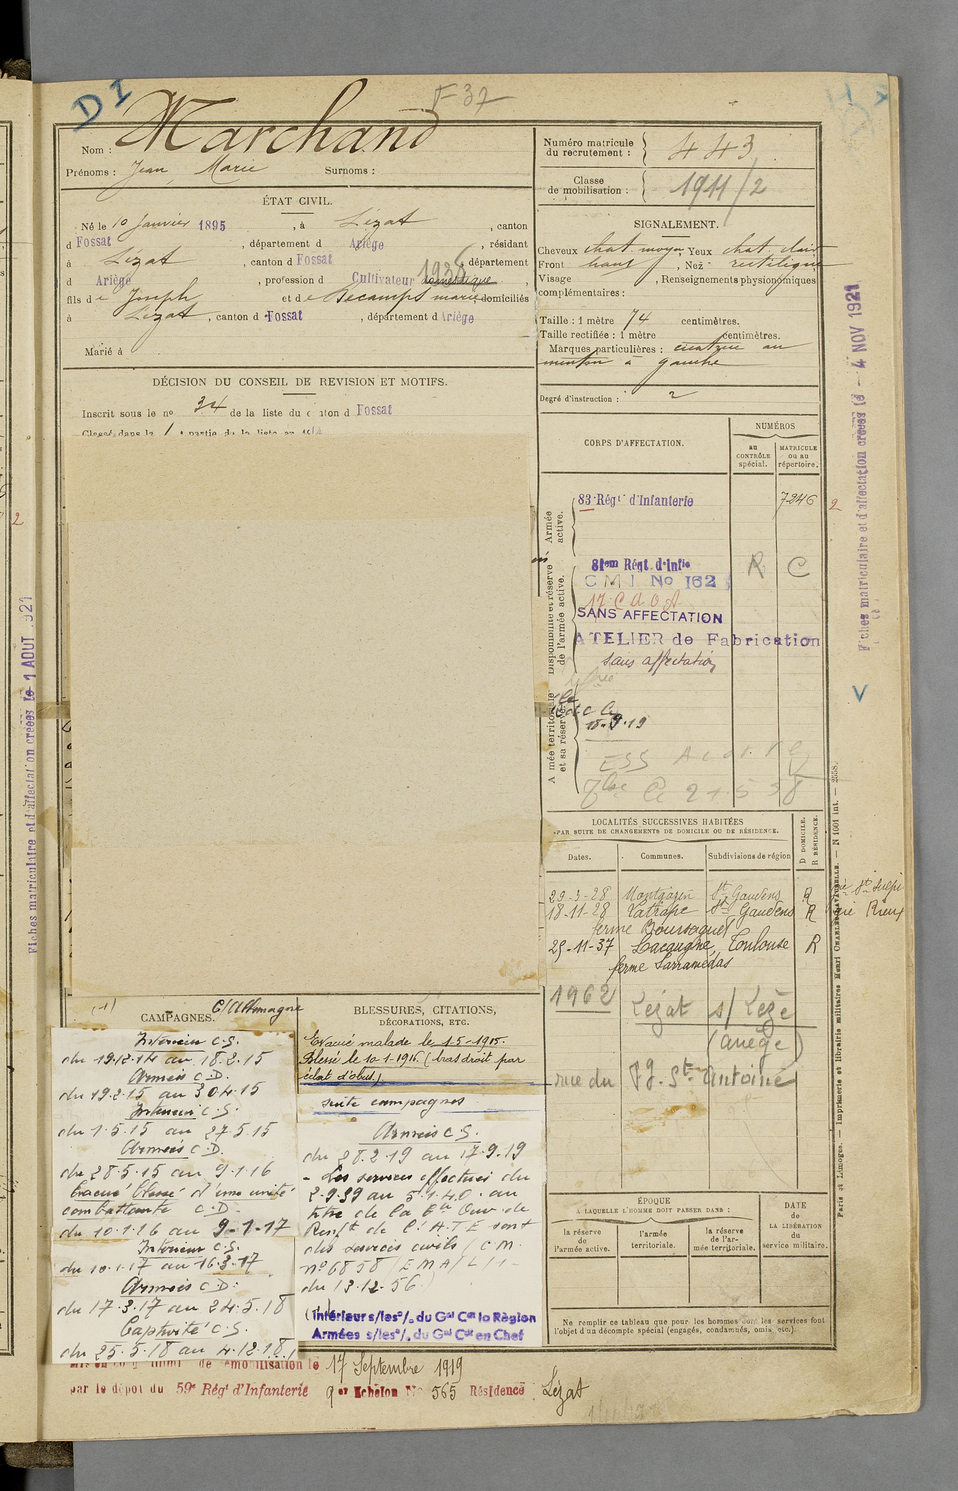 D I
F 37
Nom : Marchand
Prénoms : Jean Marie Surnoms :
ÉTAT CIVIL.
Né le 10 Janvier 1895, à Lézat, canton
d Fossat, département d Ariège, résidant
à Lézat, canton d Fossat, département
d Ariège, profession d Cultivateur domestique
fils de Joseph et de Decamps marie domiciliés
à Lézat, canton d Fossat, département d Ariège
Marié à
DÉCISION DU CONSEIL DE REVISION ET MOTIFS.
Inscrit sous le no 34 de la liste du canton d Fossat
Classé dans la 1 partie de la liste en 1914
Numéro matricule du recrutement : 443
Classe de mobilisation : 1911/2
SIGNALEMENT.
Cheveux chat. moyen, Yeux chat. clair
Front haut, Nez rectiligne
Visage , Renseignements physionomiques
complémentaires :
Taille : 1 mètre 74 centimètres.
Taille rectifiée : 1 mètre centimètres.
Marques particulières : cicatrice au
menton à gauche
Degré d'instruction : 2
CORPS D'AFFECTATION.
NUMÉROS
au CONTRÔLE spécial.
MATRICULE ou au répertoire.
Armée active.
83 Régt d'Infanterie 7246
2
Disponibilité et réserve de l'armée active.
81em Régt d'Infie R C
C M I No 162
17 C O A
SANS AFFECTATION
ATELIER de Fabrication
sans affectation
Armée territoriale et sa réserve
15-9-19
ESS
LOCALITÉS SUCCESSIVES HABITÉES
PAR SUITE DE CHANGEMENTS DE DOMICILE OU DE RÉSIDENCE.
Dates. Communes. Subdivisions de région D DOMICILE. R RÉSIDENCE.
29-3-28 Montgazin St Gaudens R
18-11-28 Latrape St Gaudens R Rieux
ferme Boursaguet
25-11-37 Lacaugne Toulouse R
ferme Larramédas
1962 Lézat s/ Lèze
(Ariège)
rue du St Antoine
ÉPOQUE
A LAQUELLE L'HOMME DOIT PASSER DANS :
la réserve de l'armée active.
l'armée territoriale.
la réserve de l'armée territoriale.
DATE de LA LIBÉRATION du service militaire.
Ne remplir ce tableau que pour les hommes dont les services font
l'objet d'un décompte spécial (engagés, condamnés, omis, etc.).
(1)
C/Allemagne
CAMPAGNES.
Intérieur C.S.
du 19.12.14 au 18.2.15
Armées C.D.
du 19.2.15 au 30.4.15
Intérieur C.S.
du 1.5.15 au 27.5.15
Armées C.D.
du 28.5.15 au 9.1.16
Evacué blessé d'une unité
combattante C.D.
du 10.1.16 au 9-1-17
Intérieur C.S.
du 10.1.17 au 16.3.17
Armées C.D.
du 17.3.17 au 24.5.18
Captivité C.S.
du 25.5.18 au 4.12.18
BLESSURES, CITATIONS,
DÉCORATIONS, ETC.
Evacué malade le 1-5-1915.
Blessé le 10-1-1916. (bras droit par
éclat d'obus.)
suite campagnes
Armées C.S.
du 28.2.19 au 17.9.19
- Les services effectués du
2-9-39 au 5.1.40. au
titre de la Cie Ouv. de
Renft de l'A.T.E sont
des services civils (C.M.
no 6858/EMA/L/1-
du 13.12.56)
Intérieur s/les o/. du Gal Ct la Région
Armées s/les o/. du Gal Ct en Chef
Mis en congé illimité de démobilisation le 17 Septembre 1919
par le dépôt du 59e Régt d'Infanterie 9er Echelon No 565 Résidence Lézat
Fiches matriculaire et d'affectation créées le - 4 NOV 1921
V
Fiches matriculaire et d'affectation créées le 1 AOUT 1921
Paris et Limoges. — Imprimerie et librairie militaires Henri CHARLES-LAVAUZELLE. — N 1001 int. — 2558.